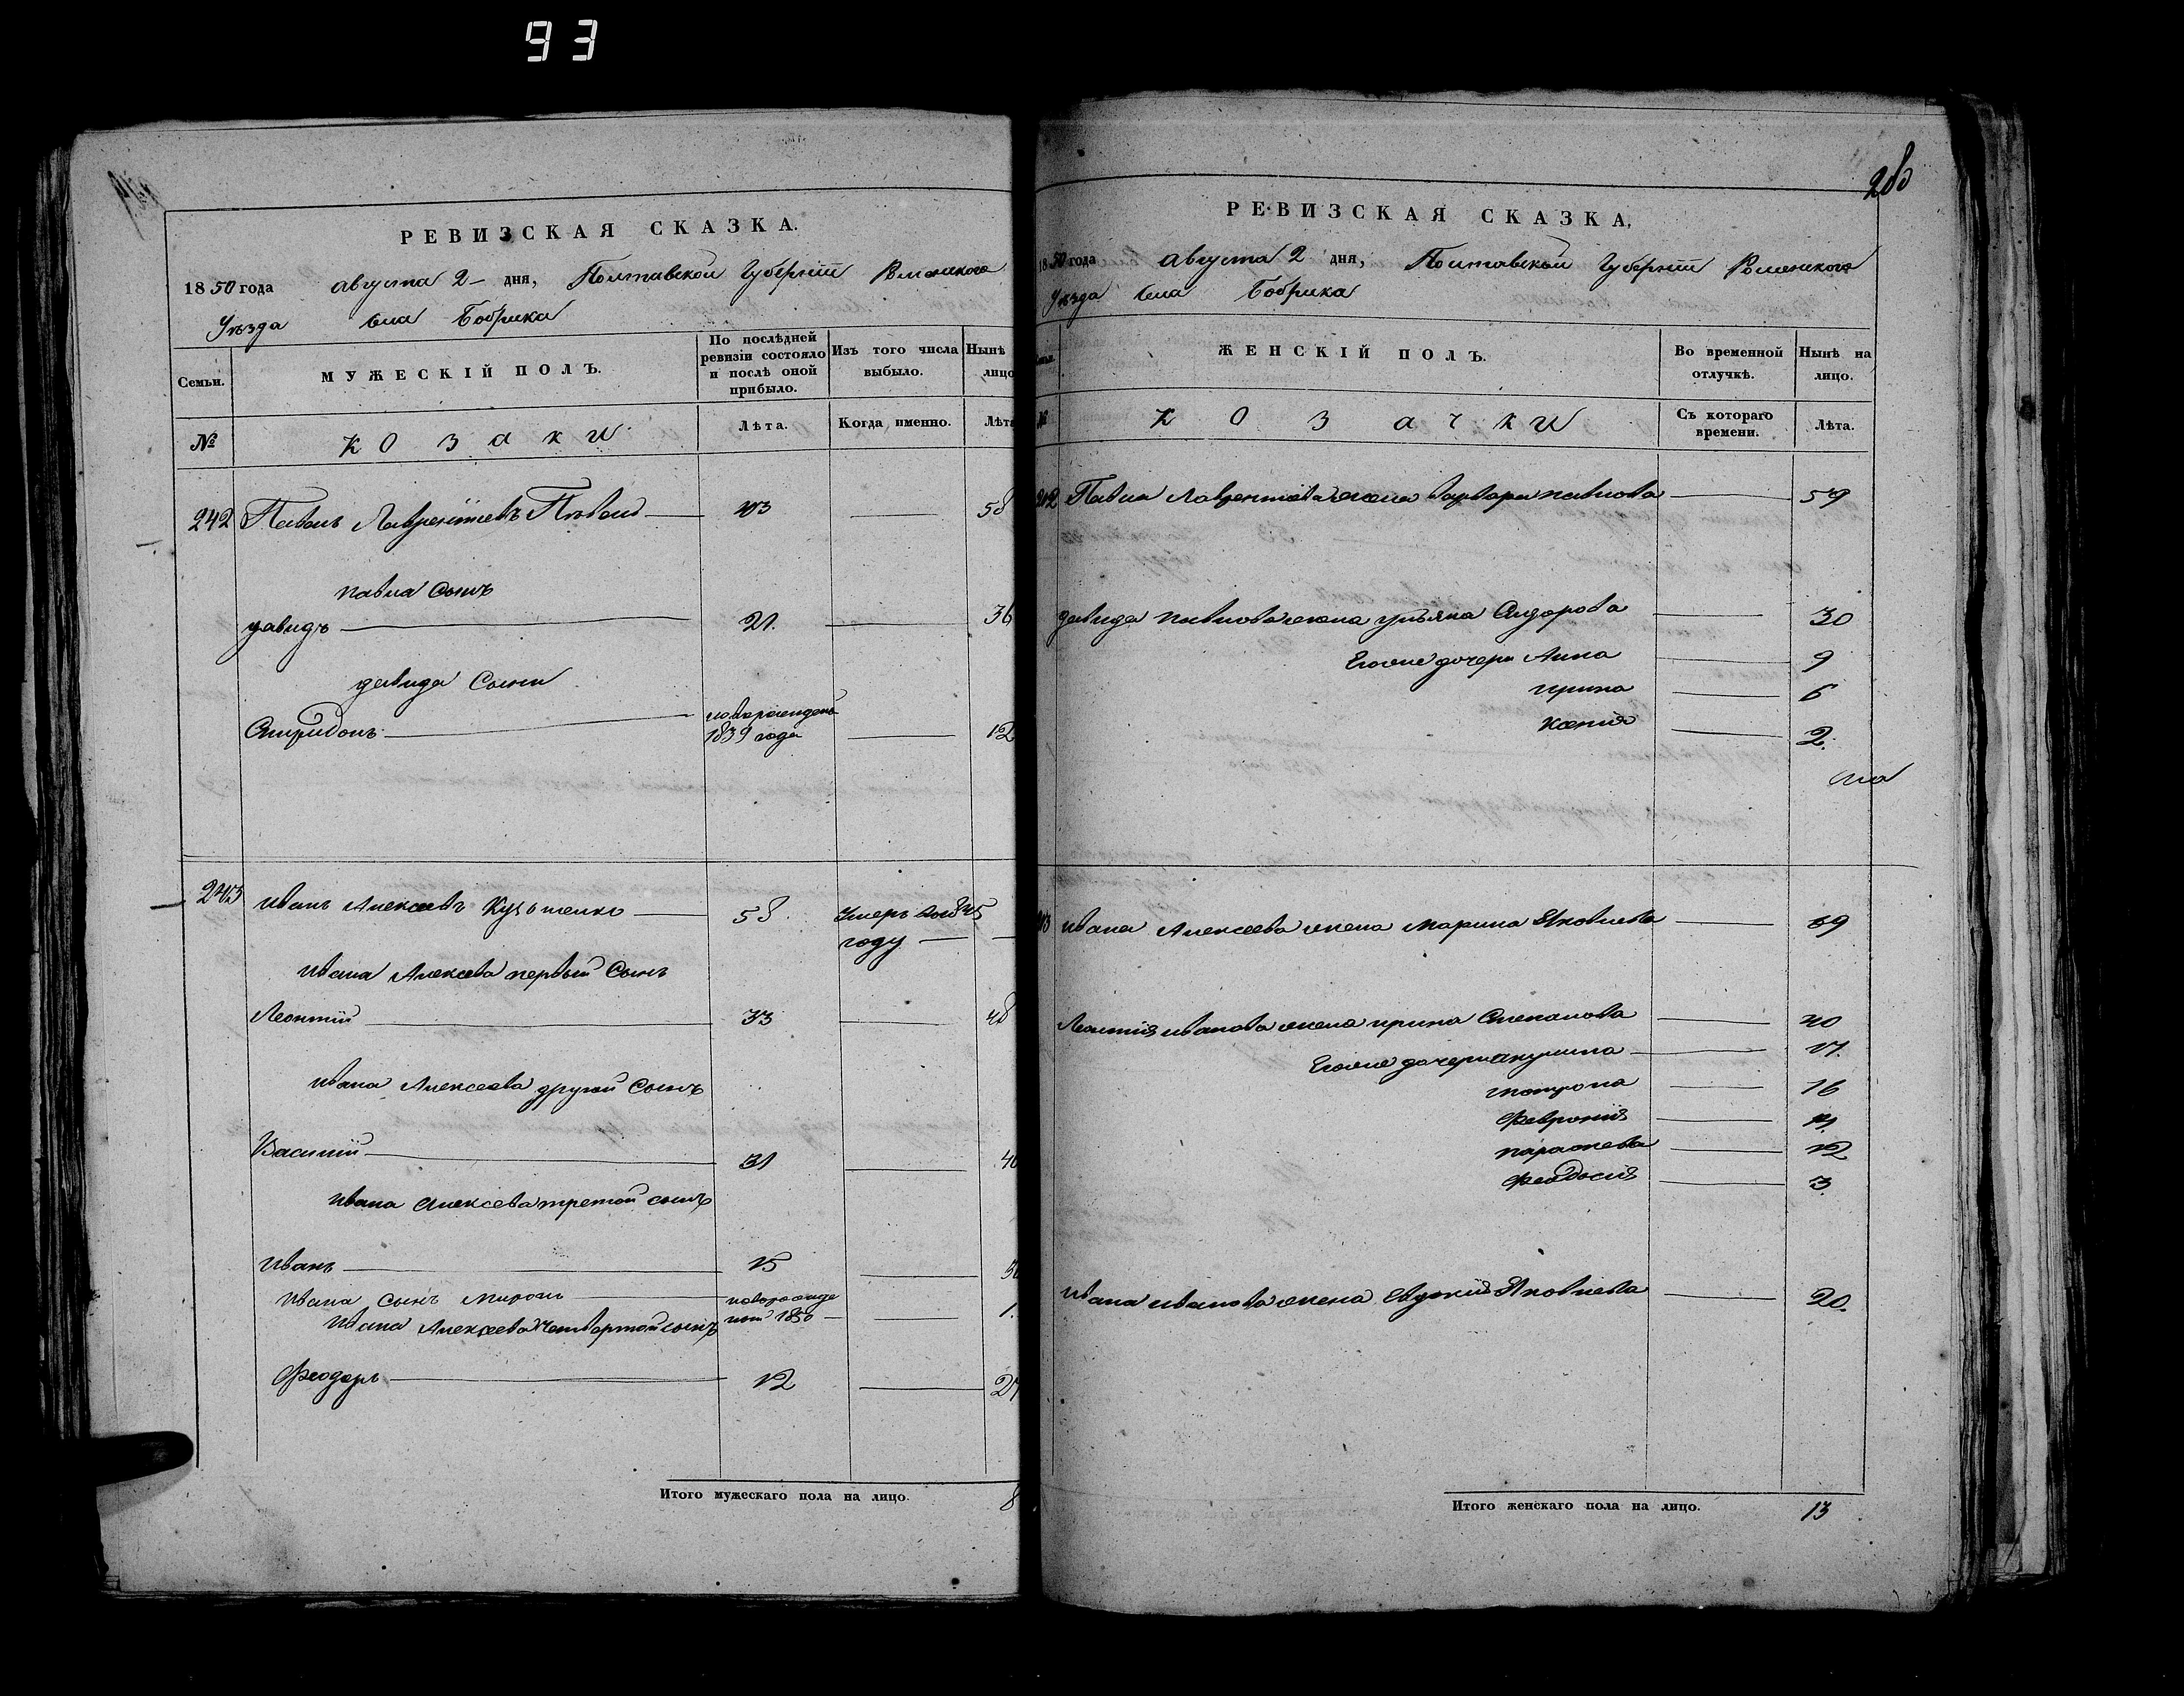 93
РЕВИЗСКАЯ СКАЗКА.
1850 года августа 2 дня, Полтавской Губерніи Роменского
Уѣзда Села Бобрика
Семьи.
МУЖЕСКІЙ ПОЛЪ.
По послѣдней ревизіи состояло и послѣ оной прибыло.
Изъ того числа выбыло.
Нынѣ лицо
№
козаки
Лѣта.
Когда именно.
Лѣта
242 Павелъ Лаврентіевъ 43 58
павла Сынъ
давидъ 21. 36
давида Сынъ
Спиридонъ новорожденъ 1839 года 12
243 иванъ Алексеевъ Кузьменко 58. умеръ 1845 году
ивана Алексева первый Сынъ
Леонтій 33 48
ивана Алексеева другой Сынъ
Василій 31 46
ивана Алексева третой сынъ
иванъ 15 30
ивана Сынъ миронъ новорожде ный 1850 1.
ивана Алексеева четвертой сынъ
Феодоръ 12 27
Итого мужескаго пола на лицо. 8
280
РЕВИЗСКАЯ СКАЗКА,
1850 года августа 2 дня, Полтавской Губерніи Роменского
Уѣзда Села Бобрика
ЖЕНСКІЙ ПОЛЪ.
Во временной отлучкѣ.
Нынѣ на лицо.
№
козачки
Съ котораго времени.
Лѣта.
242 Павла Лаврентіева жена варвара павлова 59
давида павлова жена ульяна Сидорова 30
Еговые дочери Анна 9
ирина 6
Ксенія 2.
243 ивана Алексеева жена марина Яковлева 69
Леонтія иванова жена ирина Степанова 40
Еговые дочери акулина 17.
мотрона 16
Февронія 14.
параскева 12
Феодосія 3.
ивана иванова жена Евдокія Яковлева 20.
Итого женскаго пола на лицо. 13